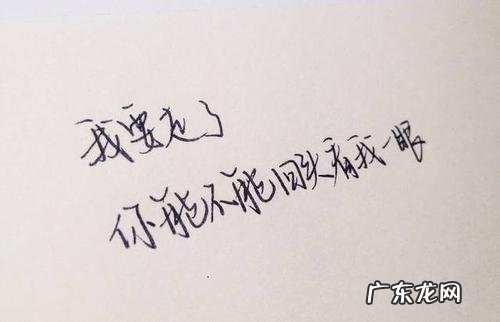 我要走了
你能不能回头看我一眼
广东龙网